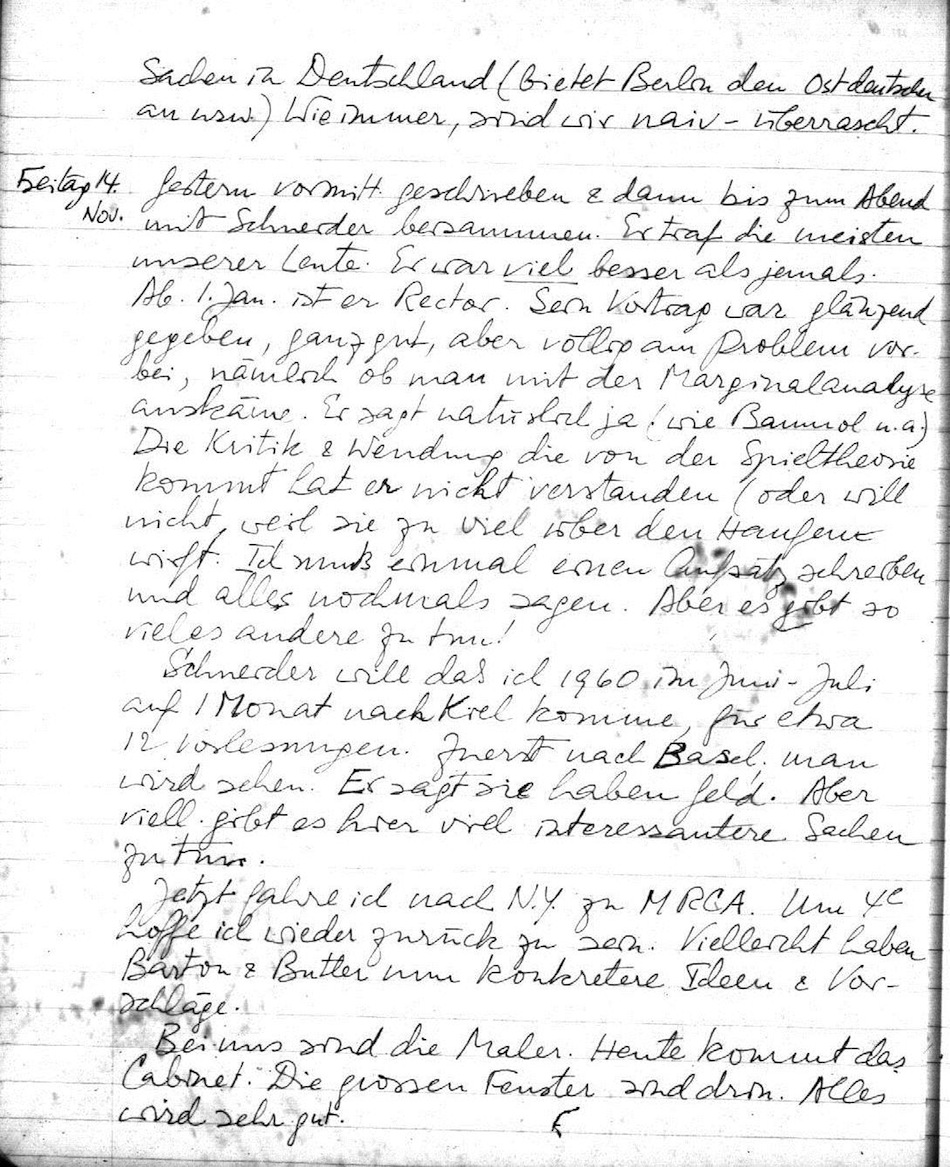 Sachen in Deutschland (bietet Berlin den Ostdeutschen
an usw.) Wie immer, sind wir naiv - überrascht.
Freitag 14. Gestern vormitt. geschrieben & dann bis zum Abend
Nov. mit Schneider beisammen. Er traf die meisten
unserer Leute. Er war viel besser als jemals.
Ab. 1. Jan. ist er Rector. Sein Vortrag war glänzend
gegeben, ganz gut, aber völlig am Problem vor-
bei, nämlich ob man mit der Marginalanalyse
auskäme. Er sagt natürlich ja (wie Baumol u.a.)
Die Kritik & Wendung die von der Spieltheorie
kommt hat er nicht verstanden (oder will
nicht, weil sie zu viel über den Haufen
wirft. Ich muß einmal einen Aufsatz schreiben
und alles nochmals sagen. Aber es gibt so
vieles andere zu tun!
Schneider will das ich 1960 im Juni - Juli
auf 1 Monat nach Kiel komme, für etwa
12 Vorlesungen. Zuerst nach Basel, man
wird sehen. Er sagt sie haben Geld. Aber
viell. gibt es hier viel interessantere Sachen
zu tun.
Jetzt fahre ich nach N.Y. zu MRCA. Um 4e
hoffe ich wieder zurück zu sein. Vielleicht haben
Barton & Butler nun konkretere Ideen & Vor-
schläge.
Bei uns sind die Maler. Heute kommt das
Cabinet. Die grossen Fenster sind drin. Alles
wird sehr gut.